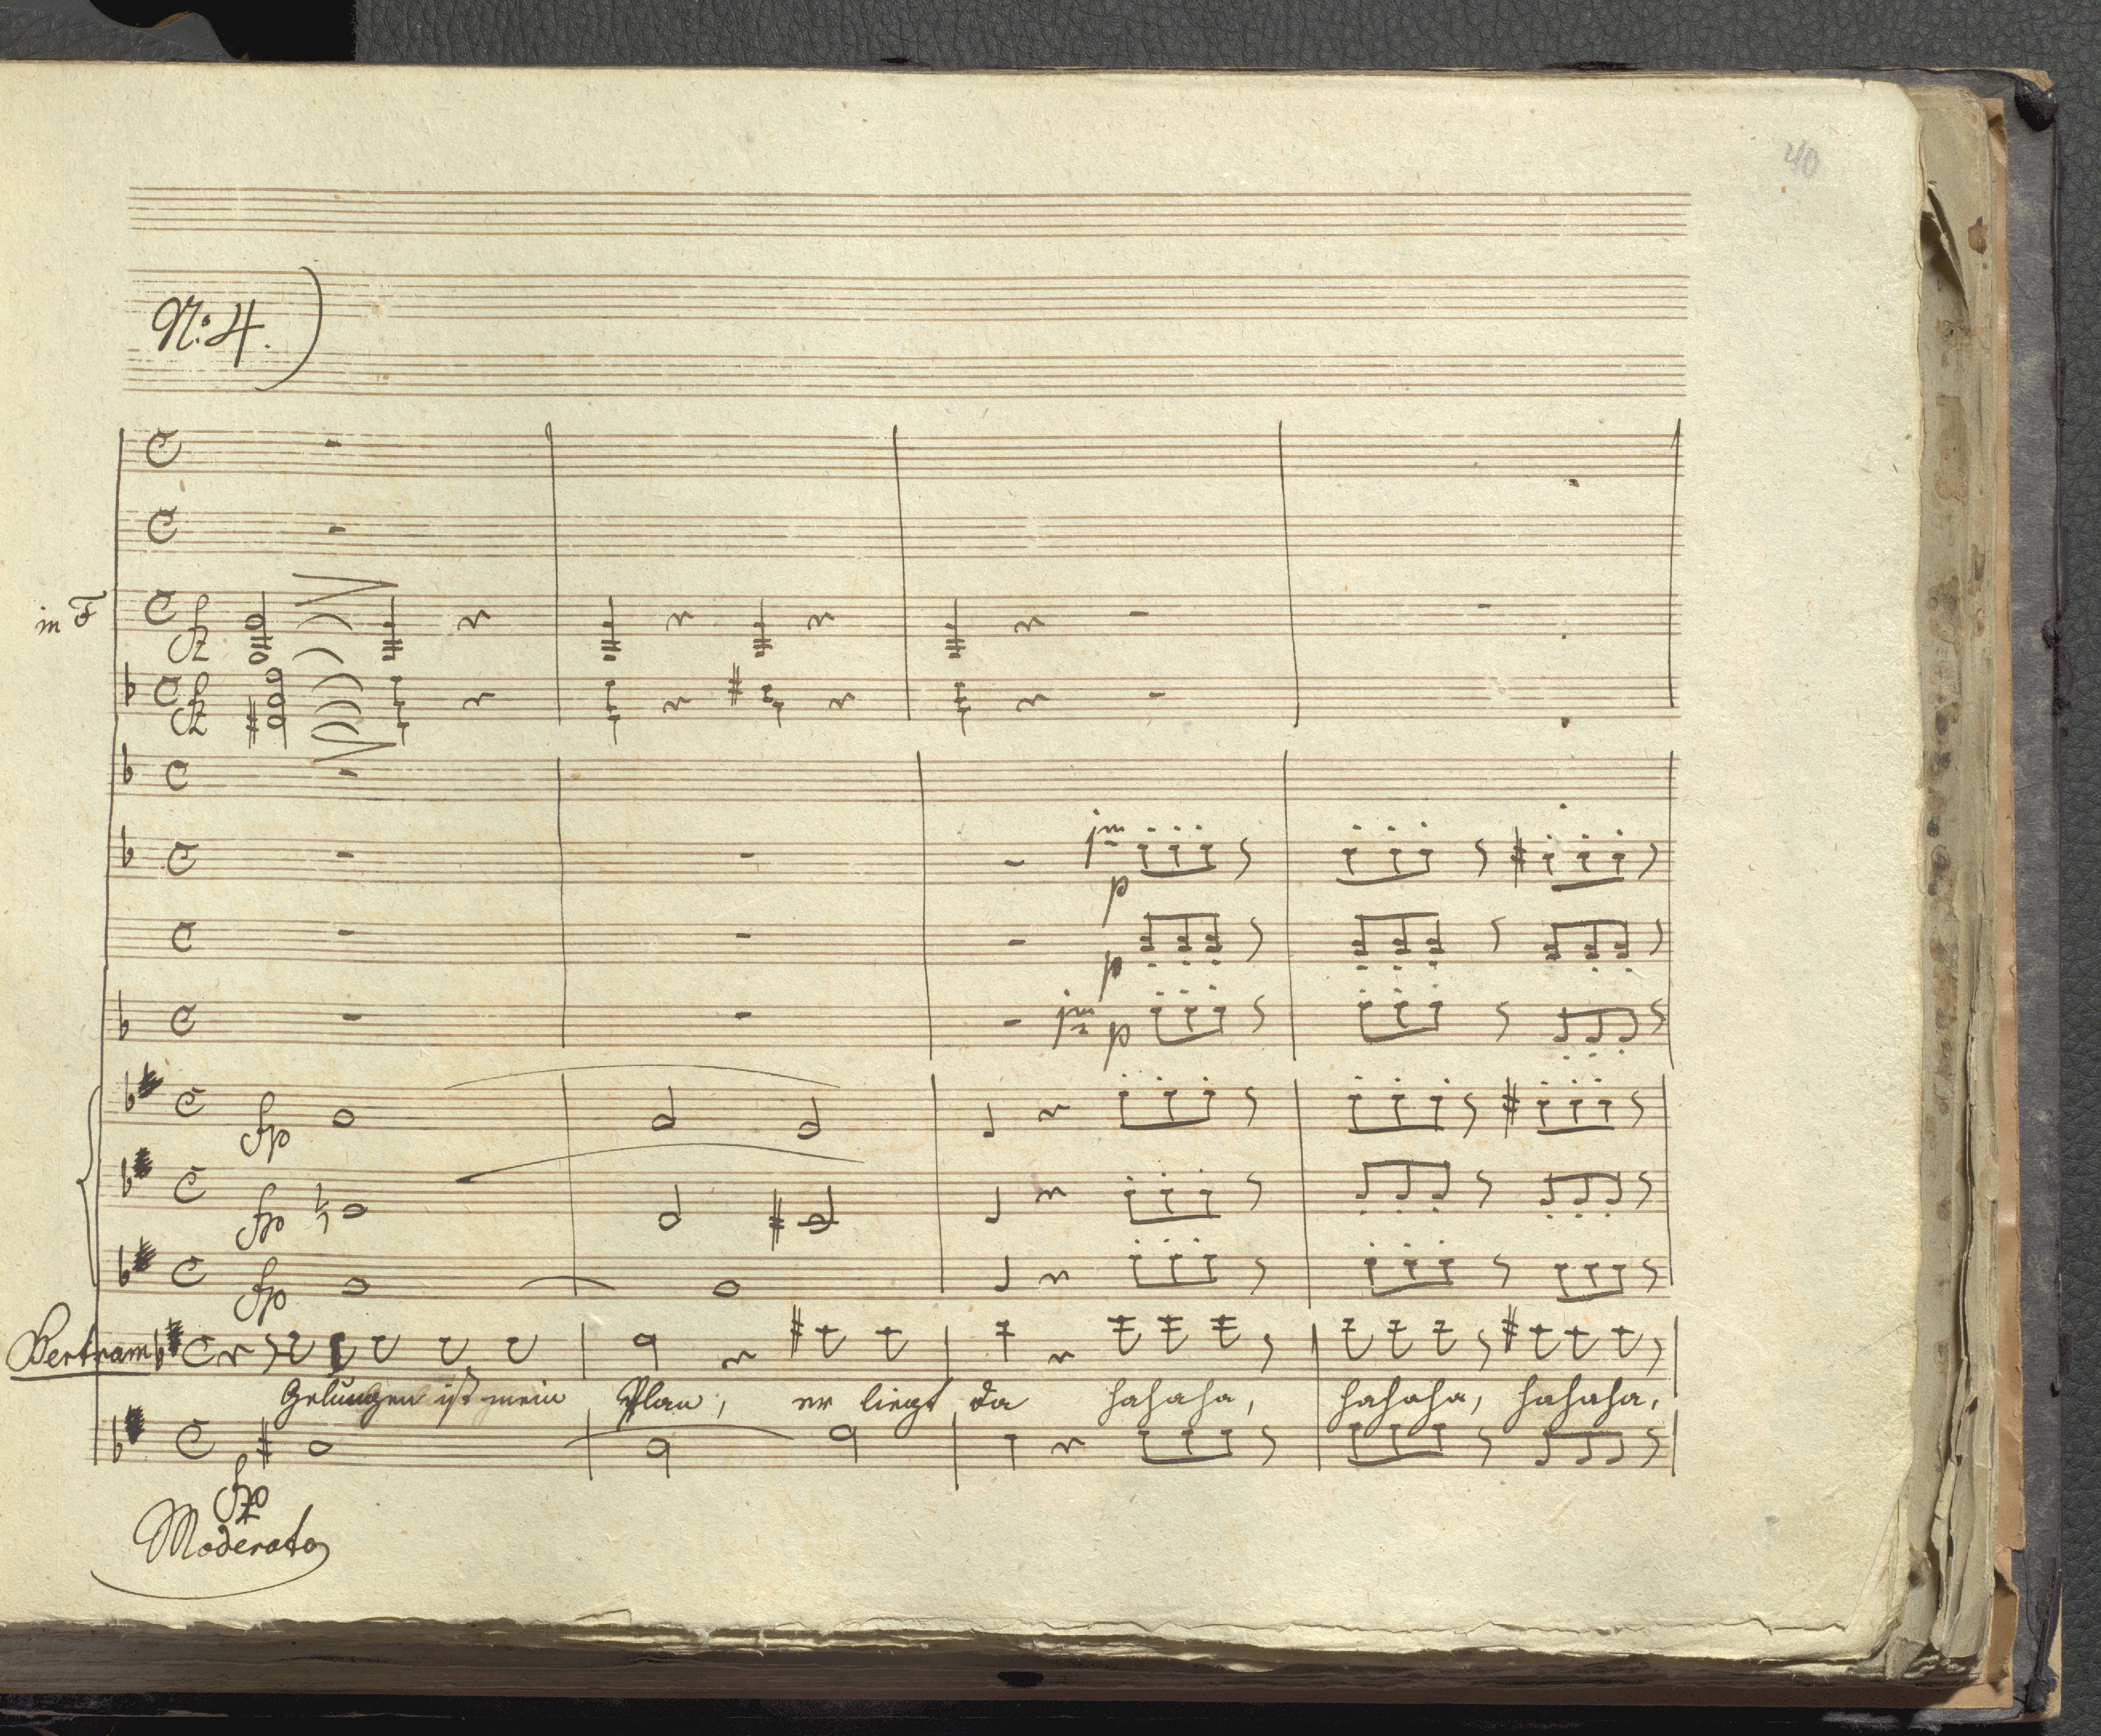 40
No: 4.
in F
fz
fz
p
p
p
fp
fp
fp
Bertram
Gelungen ist mein Plan, er liegt da hahaha, hahaha, hahaha,
fp
Moderato